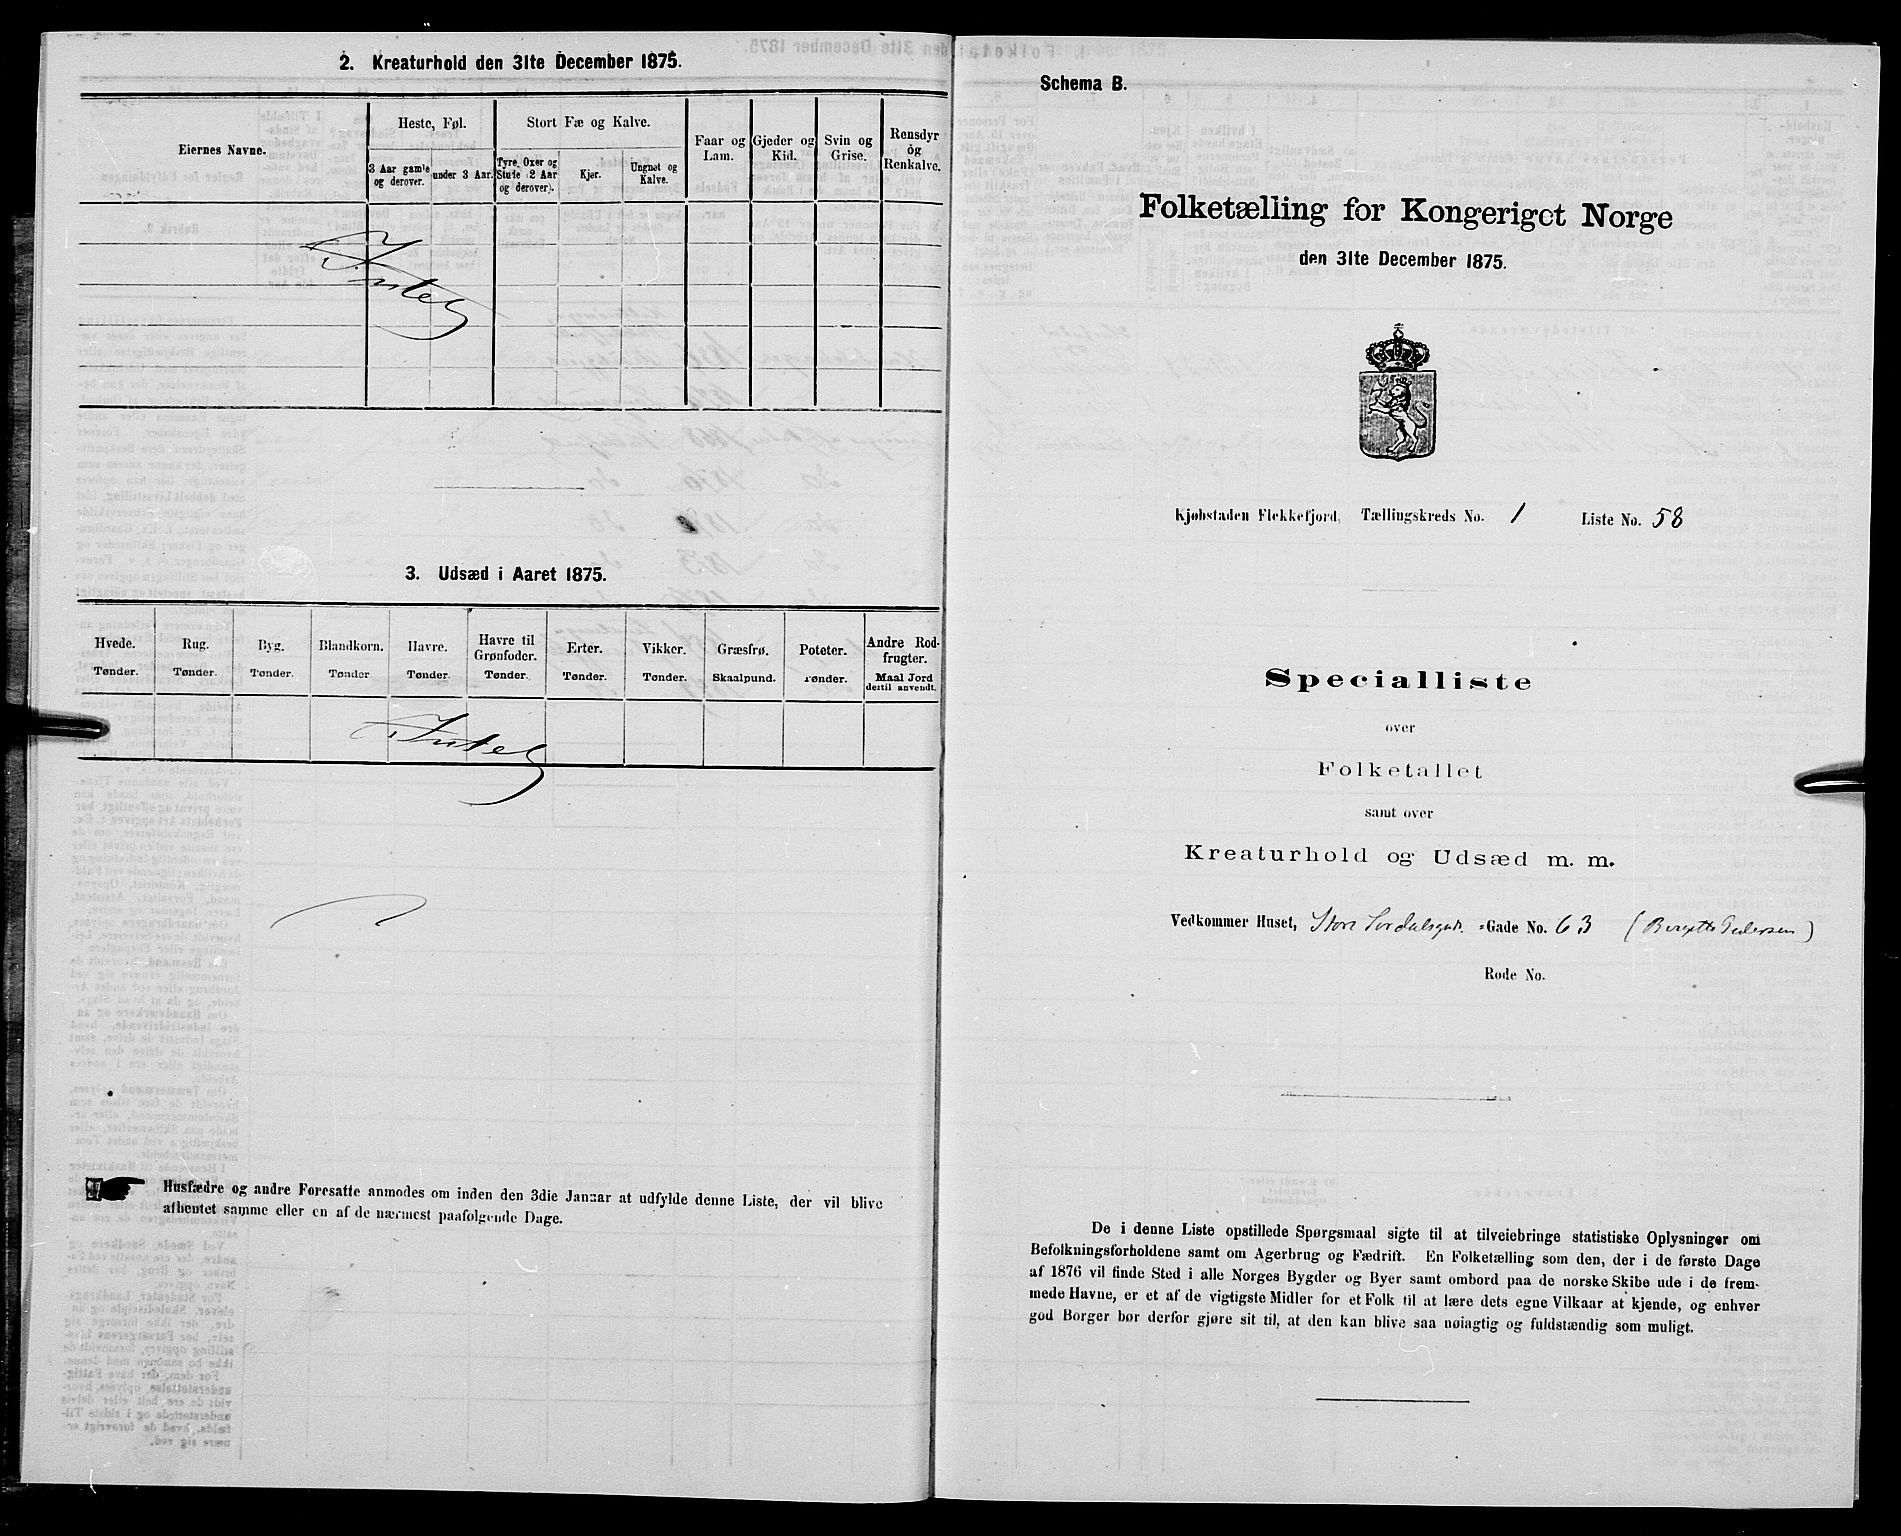 2. Kreaturhold den 31te December 1875.
Eiernes Navne.
Heste, Føl.
Stort Fæ og Kalve.
Faar og
Lam.
Gjeder og
Kid.
Svin og
Grise.
Rensdyr
og
Renkalve.
3 Aar gamle
og derover.
under 3 Aar.
Tyre, Oxer og
Stude (2 Aar
og derover).
Kjør.
Ungnøt og
Kalve.
Intet
3. Udsæd i Aaret 1875.
Hvede.
Rug.
Byg.
Blandkorn.
Havre.
Havre til
Grønfoder.
Erter.
Vikker.
Græsfrø.
Poteter.
Andre Rod-
frugter.
Tønder.
Tønder.
Tønder.
Tønder
Tønder.
Tønder.
Tønder.
Tønder.
Skaalpund.
Tønder.
Maal Jord
dertil anvendt.
Intet
Husfædre og andre Foresatte anmodes om inden den 3die Januar at udfylde denne Liste, der vil blive
afhentet samme eller en af de nærmest paafølgende Dage.
Schema B.
Folketælling for Kongeriget Norge
den 31te December 1875.
Kjøbstaden Flekkefjord, Tællingskreds No. 1 Liste No. 58
Specialliste
over
Folketallet
samt over
Kreaturhold og Udsæd m. m.
Vedkommer Huset, Store -Gade No. 63 ( Pedersen )
Rode No.
De i denne Liste opstillede Spørgsmaal sigte til at tilveiebringe statistiske Oplysninger om
Befolkningsforholdene samt om Agerbrug og Fædrift. En Folketælling som den, der i de første Dage
af 1876 vil finde Sted i alle Norges Bygder og Byer samt ombord paa de norske Skibe ude i de frem-
mede Havne, er et af de vigtigste Midler for et Folk til at lære dets egne Vilkaar at kjende, og enhver
god Borger bør derfor gjøre sit til, at den kan blive saa nøiagtig og fuldstændig som muligt.